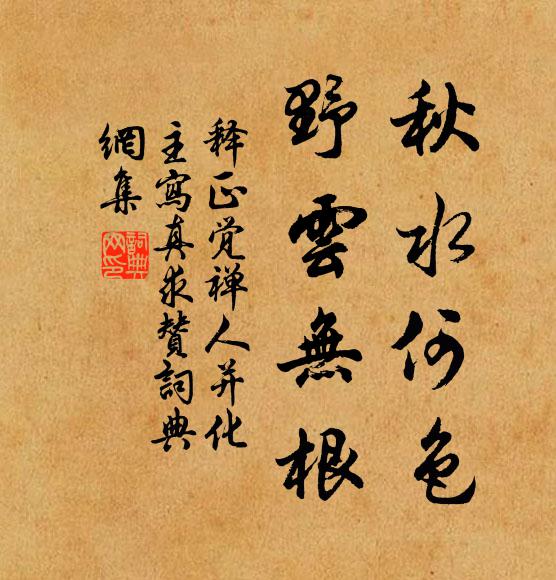 秋水何色
野雲無根
释正觉禅人并化
主寫真求贊詞典
網集
詞典
网印